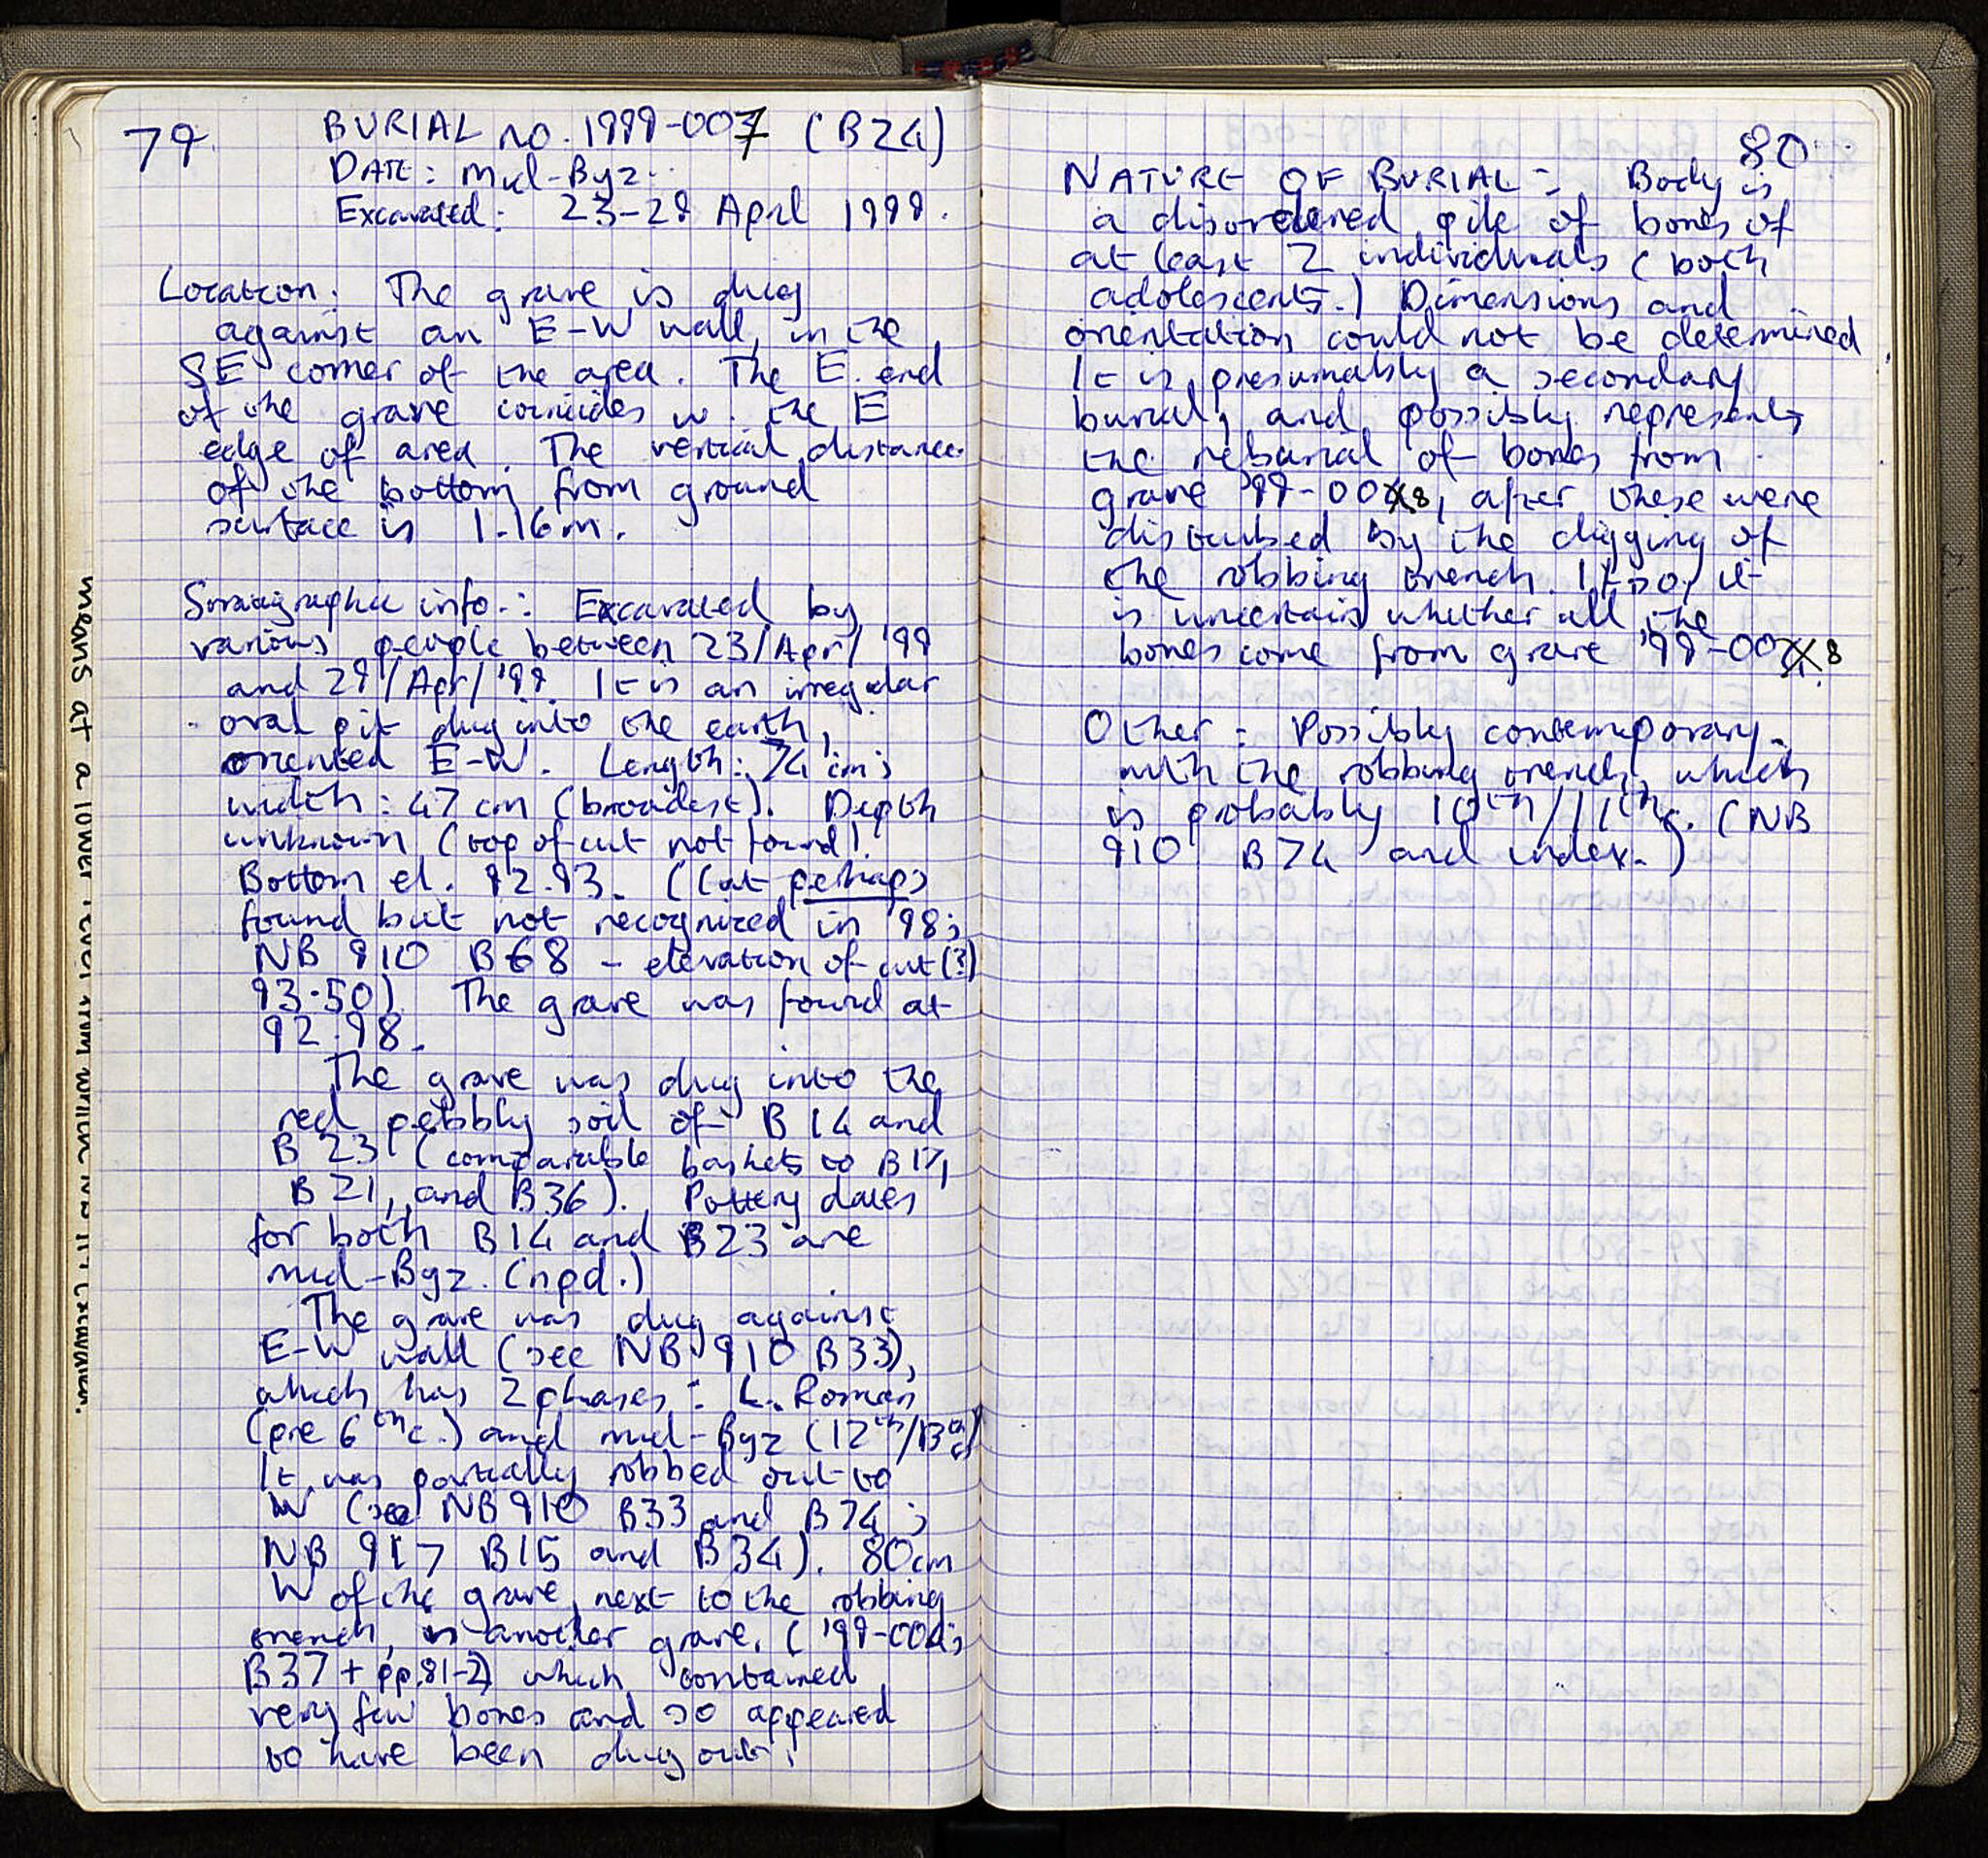 79
BURIAL no. 1999-007 (B24)
DATE: Mid-Byz.
Excavated: 23-29 April 1999.
Location: The grave is dug
against an E-W wall, in the
SE corner of the area. The E. end
of the grave coincides w. the E
edge of area. The vertical distance
of the bottom from ground
surface is 1.16m.
Stratigraphic info.: Excavated by
various people between 23/Apr/'99
and 29/Apr/'99. It is an irregular
oval pit dug into the earth,
oriented E-W. Length: 74 cm;
width: 47 cm (broadest). Depth
unknown (top of cut not found).
Bottom el. 92.93. (Cut perhaps
found but not recognized in '98;
NB 910 B68 - elevation of cut (?)
93.50). The grave was found at
92.98.
The grave was dug into the
red pebbly soil of B14 and
B23 (comparable baskets to B17,
B21, and B36). Pottery dates
for both B14 and B23 are
mid-Byz. (npd.)
The grave was dug against
E-W wall (see NB 910 B33),
which has 2 phases: L. Roman
(pre 6th c.) and mid-Byz (12th/13th c.)
It was partially robbed out to
W (see NB 910 B33 and B74;
NB 917 B15 and B34). 80cm
W of the grave, next to the robbing
trench, is another grave, ('99-004;
B37 + pp.81-2) which contained
very few bones and so appeared
to have been dug out.
means at a lower level from which NB 11 excavated.
80
NATURE OF BURIAL: Body is
a disordered pile of bones of
at least 2 individuals (both
adolescents.) Dimensions and
orientation could not be determined.
It is presumably a secondary
burial, and possibly represents
the reburial of bones from
grave '99-008, after these were
disturbed by the digging of
the robbing trench. If so, it
is uncertain whether all the
bones come from grave '99-008.
Other: Possibly contemporary
with the robbing trench, which
is probably 10th/11th c. (NB
910 B74 and index.)